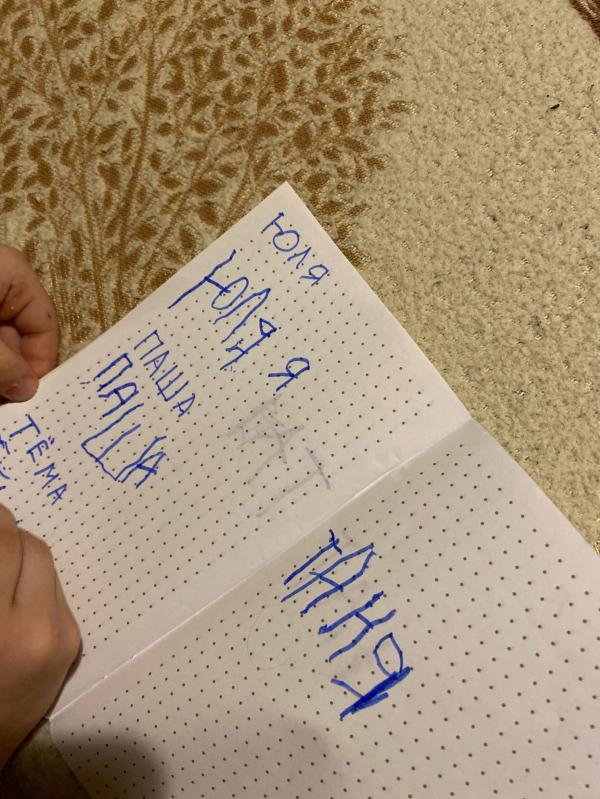 ЮЛЯ
ЮЛЯ Я
ПАША
ПАША
ТЁМА
ТАНЯ